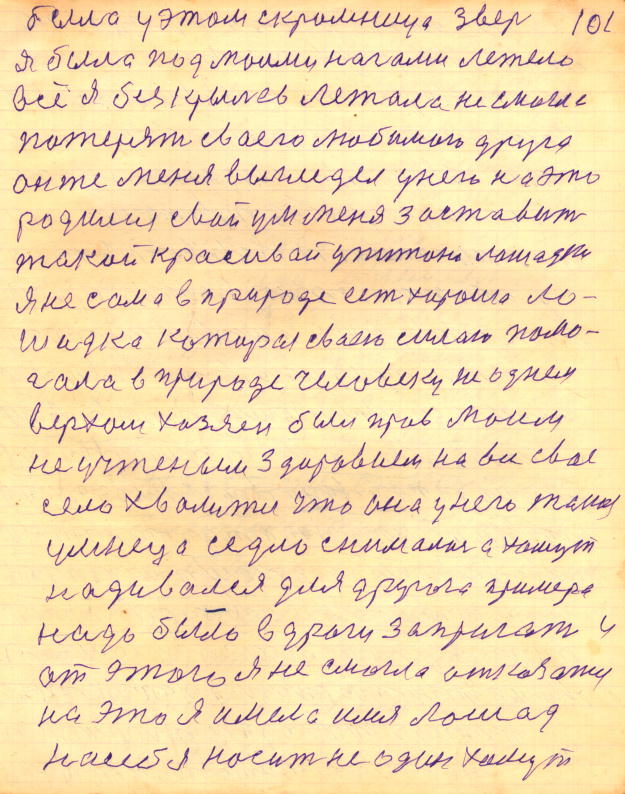 была у этом скромница звер 101
я была под моими нагами летело
всё я без крылев летала не смогла
потерят своего любимого друга
он же меня выгледел у него на это
родился свой ум меня заставит
такой красивай у этоно лошадки
я не сама в природе ест хароша ло-
шадка которая сваею силаю помо-
гала в природе человеку не однем
верхом хазяен был прав моим
не учтеным здоровьем на все свае
село хвалится что она у него такая
умнеца седло снималась а хамут
надивался для другога примера
надо было в драги запрягат и
от этого я не смогла отказатц
на это я имела имя Лошад
на себя носит не один хамут